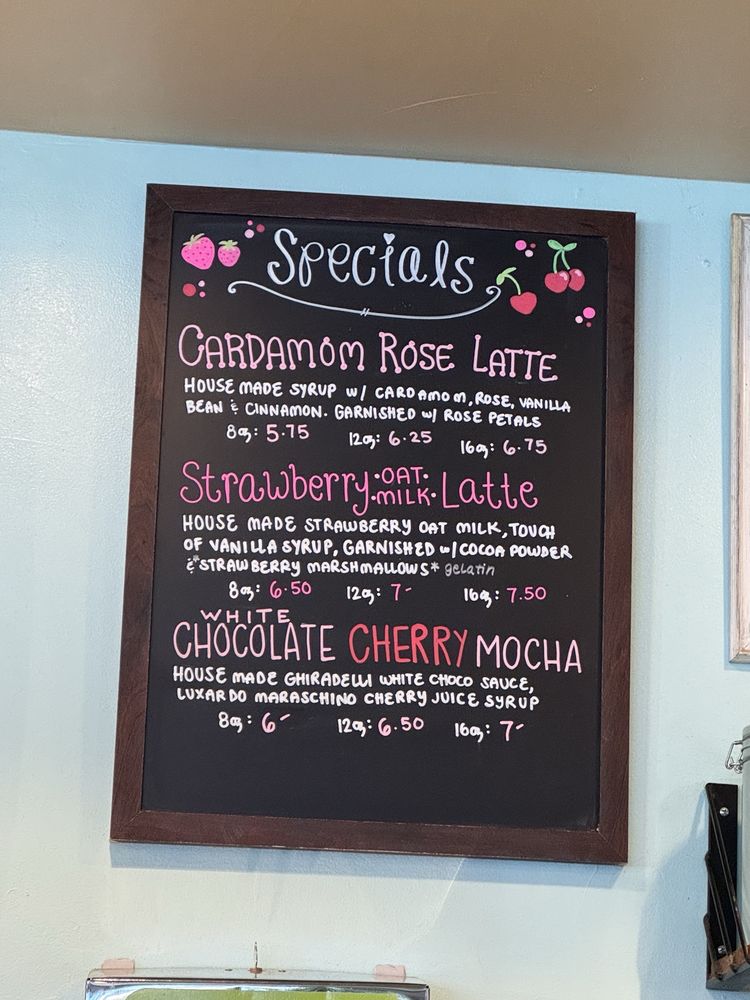 Specials
CARDAMOM ROSE LATTE
HOUSE MADE SYRUP w/ CARDAMOM, ROSE, VANILLA
BEAN & CINNAMON. GARNISHED w/ ROSE PETALS
8oz: 5.75 12oz: 6.25 16oz: 6.75
Strawberry ·OAT MILK· Latte
HOUSE MADE STRAWBERRY OAT MILK, TOUCH
OF VANILLA SYRUP, GARNISHED w/ COCOA POWDER
& *STRAWBERRY MARSHMALLOWS* gelatin
8oz: 6.50 12oz: 7- 16oz: 7.50
WHITE
CHOCOLATE CHERRY MOCHA
HOUSE MADE GHIRADELLI WHITE CHOCO SAUCE,
LUXARDO MARASCHINO CHERRY JUICE SYRUP
8oz: 6- 12oz: 6.50 16oz: 7-